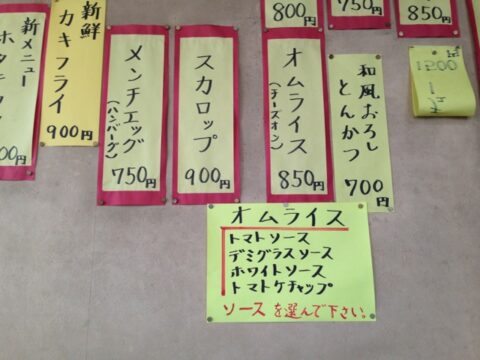 新メニュー
新鮮
カキフライ
900円
メンチエッグ
(ハンバーグ)
750円
スカロップ
900円
800円
オムライス
(チーズオン)
850円
750円
和風おろし
とんかつ
700円
850円
オムライス
トマトソース
デミグラスソース
ホワイトソース
トマトケチャップ
ソースを選んで下さい。